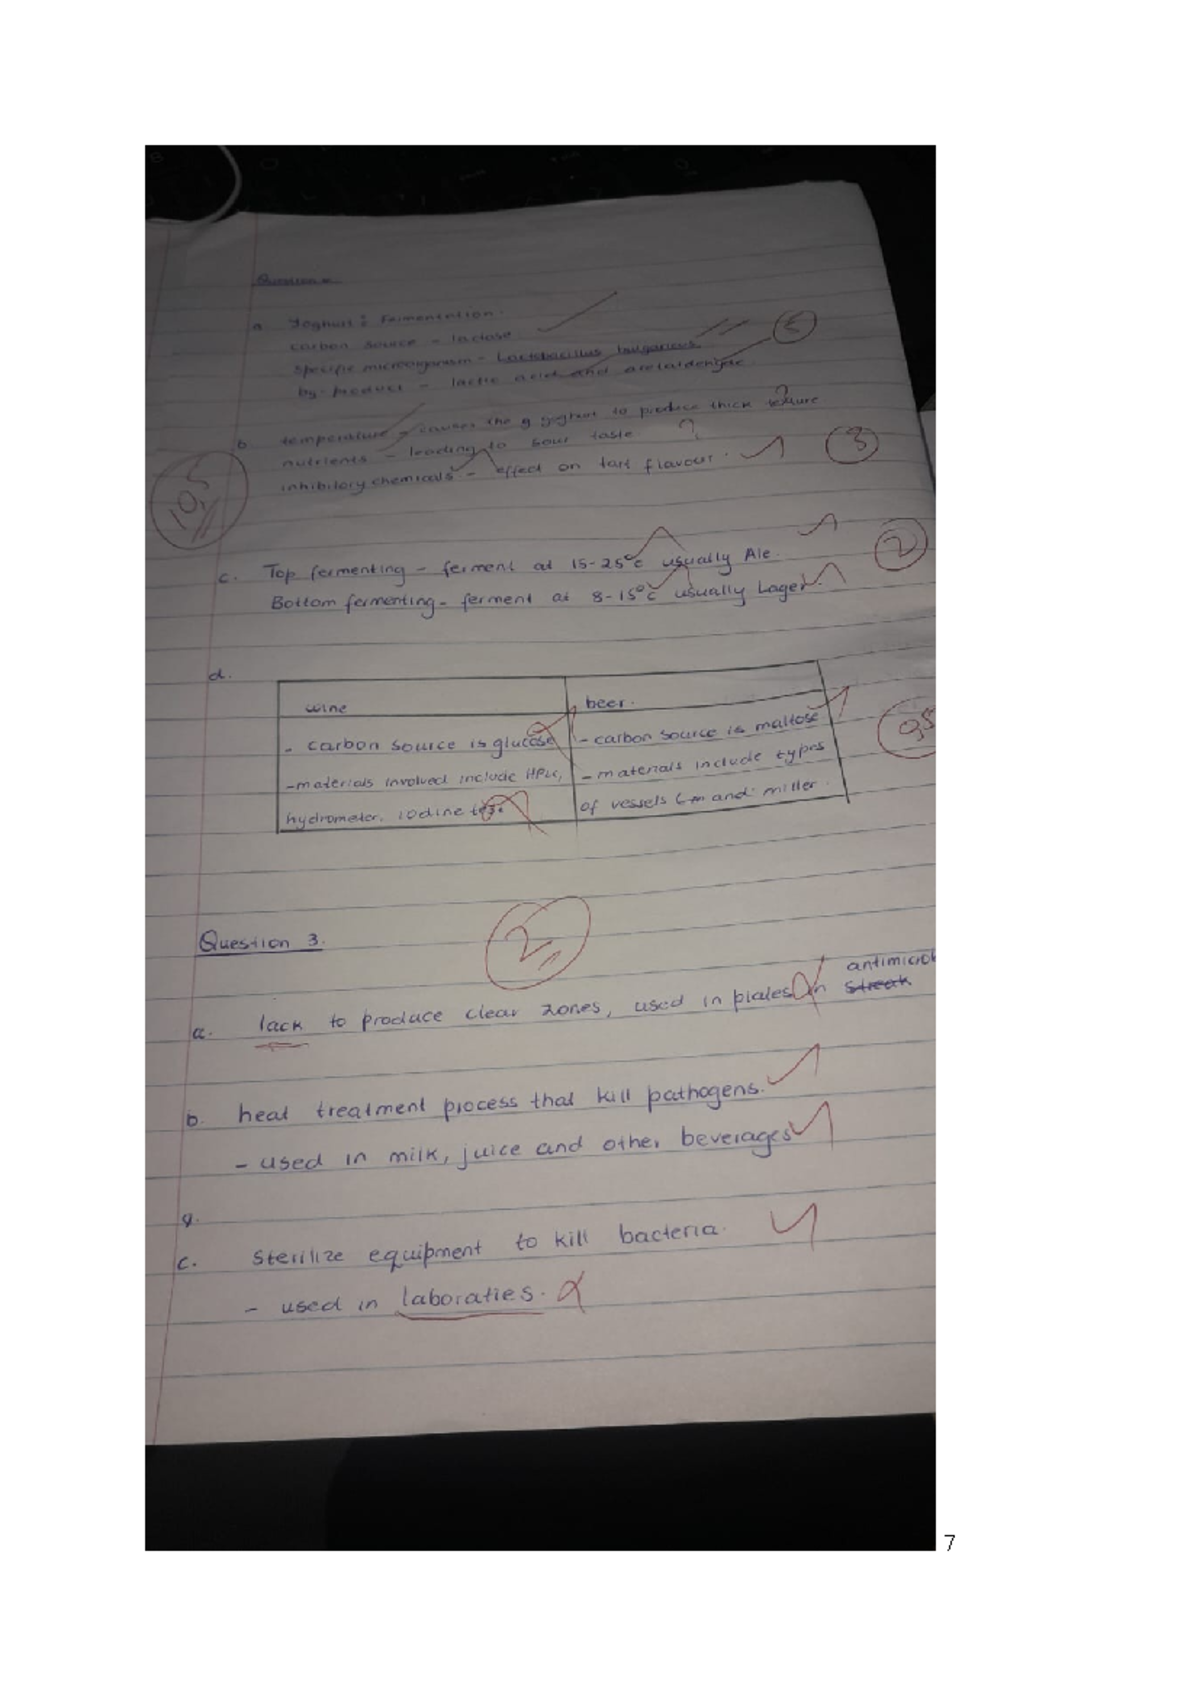 Question
a. Yoghurt: Fermentation.
carbon source - lactose
specific microorganism - Lactobacillus bulgaricus.
by-product - lactic acid and acetaldehyde.
5
b temperature - causes the yoghurt to produce thick texture
?
nutrients - leading to sour taste ?
inhibitory chemicals - effect on tart flavour.
3
10,5
c. Top fermenting - ferment at 15-25°c usually Ale.
2
Bottom fermenting - ferment at 8-15°c usually Lager.
d.
wine
- carbon source is glucose
- materials involved include HPLC,
hydrometer, iodine test
beer.
- carbon source is maltose
- materials include types
of vessels and miller.
0,5
Question 3.
2
a. lack to produce clear zones, used in plates in streak antimicrob
b. heat treatment process that kill pathogens.
- used in milk, juice and other beverages
c. sterilize equipment to kill bacteria.
- used in laboraties.
7